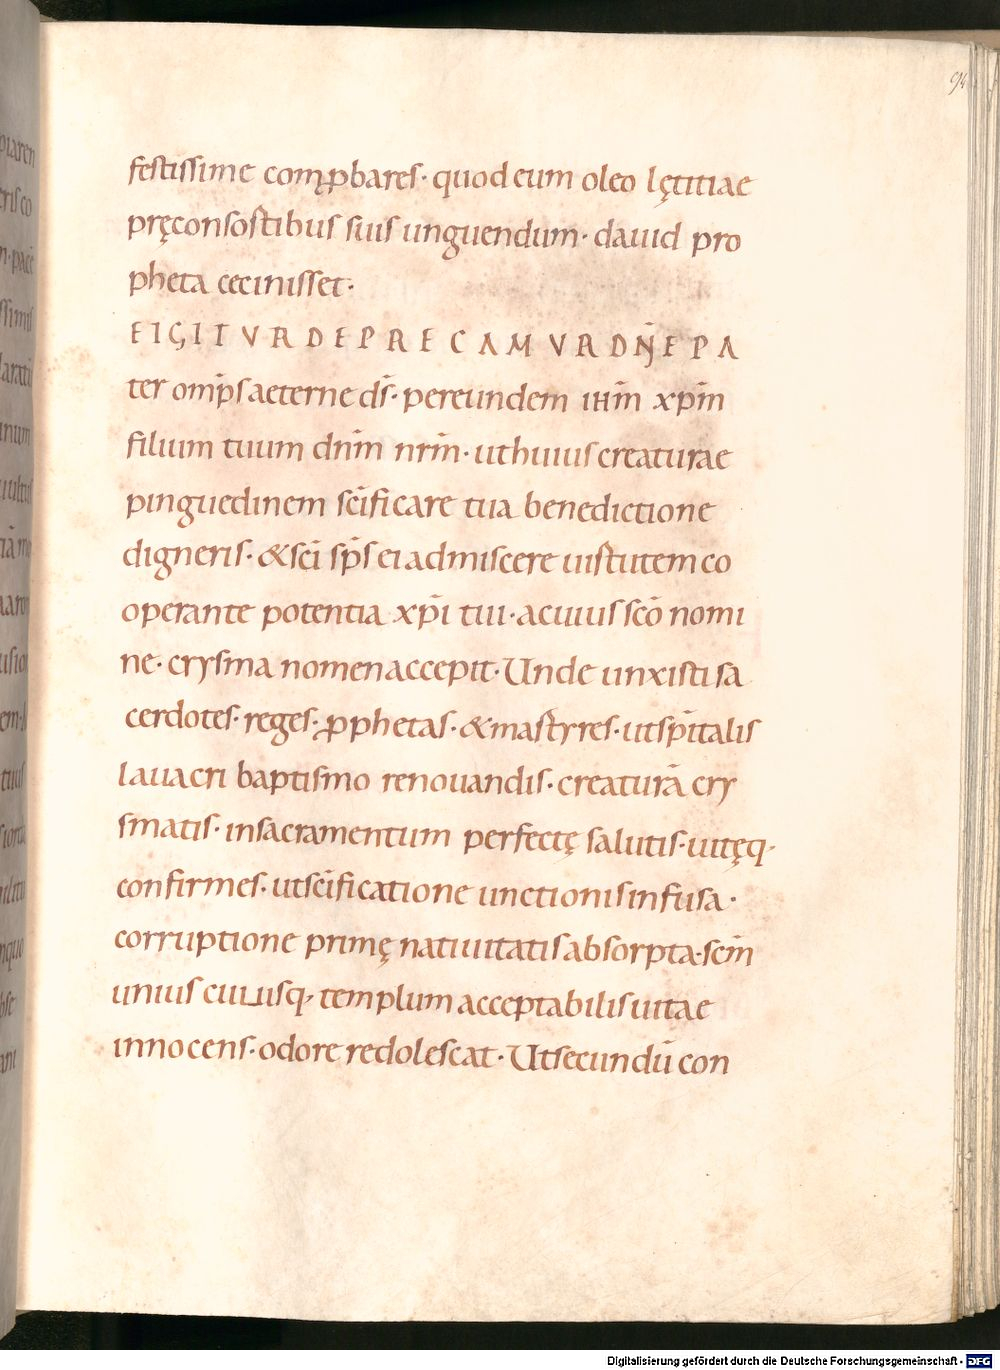 94
festissime comꝓbares· quod eum oleo lętitiae
pręconsortibus suis unguendum· dauid pro
pheta cecinisset·
EIGITVR DEPRECAMVR DN̄E PA
ter omp̄s aeterne ds̄· per eundem ihm̄ xpm̄
filium tuum dnm̄ nrm̄· ut huius creaturae
pinguedinem sc̄ificare tua benedictione
digneris· & sc̄i sp̄s ei admiscere uirtutem co
operante potentia xp̄i tui· a cuius sc̄o nomi
ne· crysma nomen accepit· Unde unxisti sa
cerdotes· reges· ꝓphetas· & martyres· ut sp̄italis
lauacri baptismo renouandis· creaturā cry
smatis· in sacramentum perfectę salutis· uitęq·
confirmes· ut sc̄ificatione unctionis infusa·
corruptione primę natiuitatis absorpta· scm̄
unius cuiusq· templum acceptabilis uitae
innocens· odore redolescat· Ut secundū con
Digitalisierung gefördert durch die Deutsche Forschungsgemeinschaft - DFG